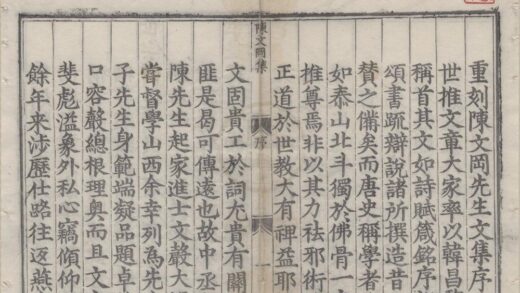 重刻陳文岡先生文集序
世推文章大家率以韓昌
稱首其文如詩賦箴銘序
頌書疏辯說諸所撰造昔
賛之備矣而唐史稱學者
如泰山北斗獨於佛骨一
推尊焉非以其力祛邪術
正道於世教大有裨益耶
陳文岡集
序
一
文固貴工於詞尤貴有關
匪是曷可傳遠也故中丞
陳先生起家進士文聲大
嘗督學山西余幸列為先
子先生身範端凝品題卓
口容聲總根理奧而且文
斐彪溢象外私心竊傾仰
餘年来涉歷仕路往返燕